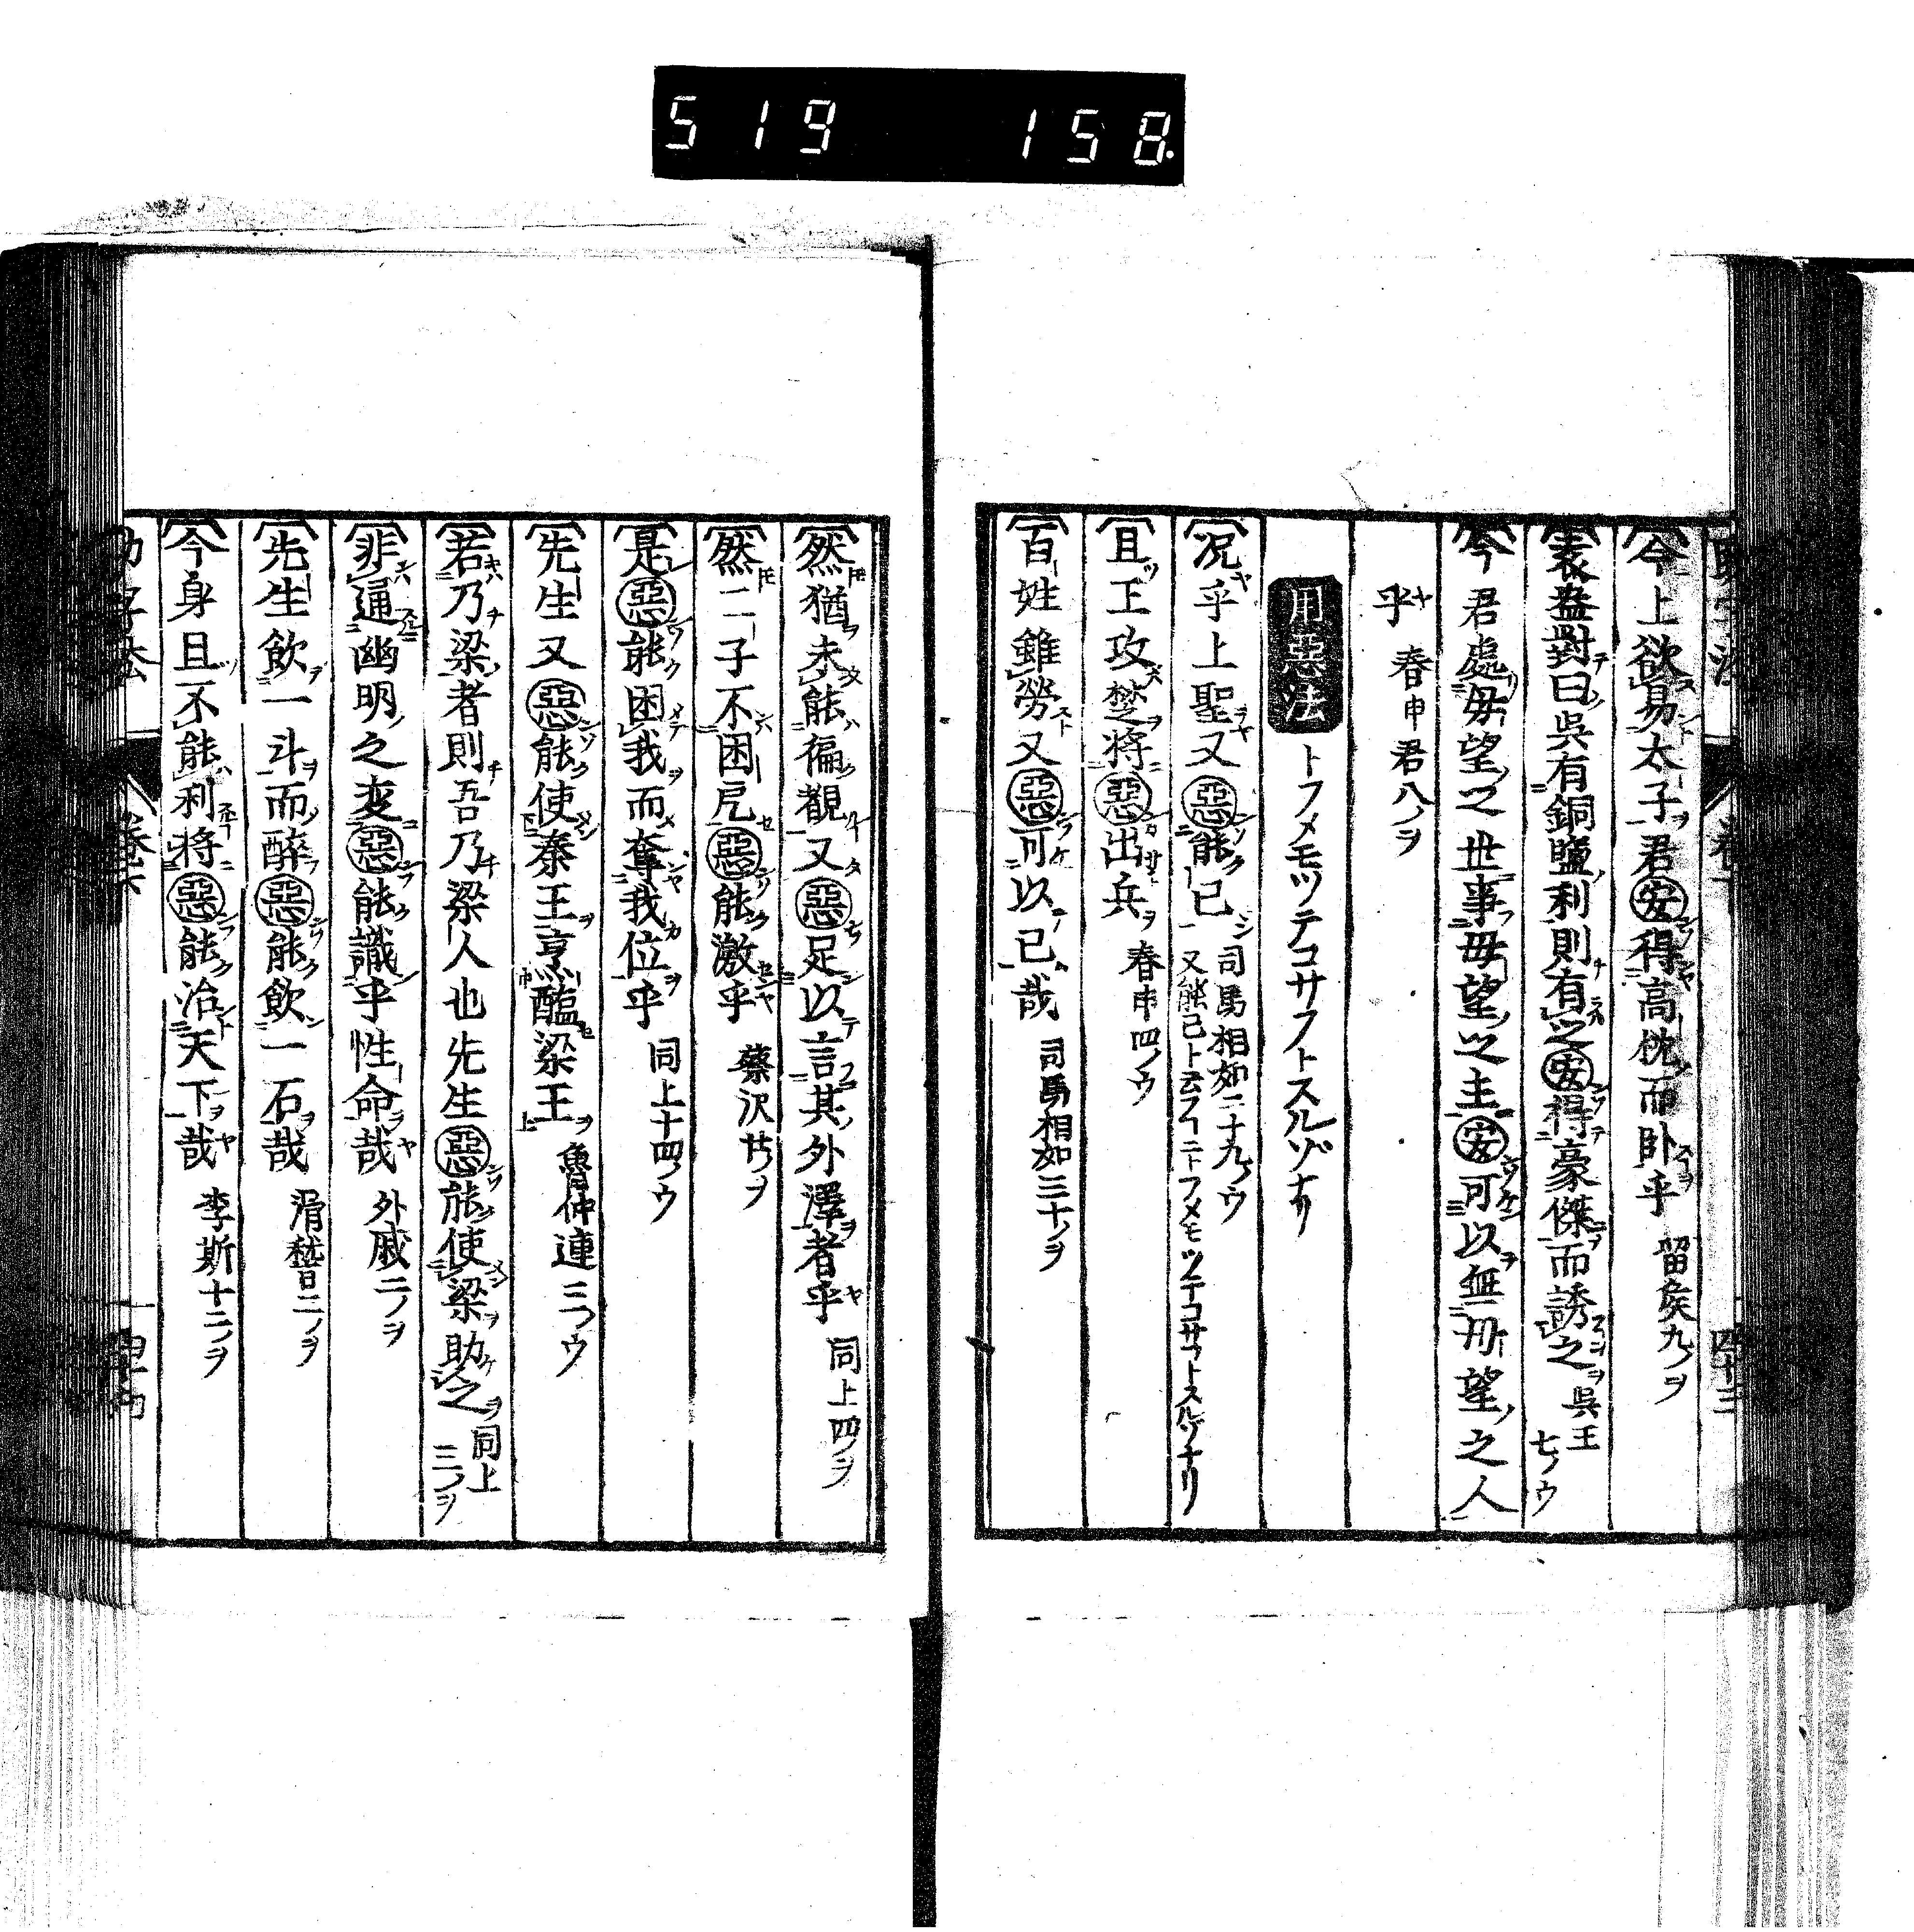 519 158.
今上欲易太子君安得高枕而臥乎 留侯九ノヲ
袁盎對曰呉有銅鹽利則有之安得豪傑而誘之 呉王七ノウ
今君處毋望之世事毋望之主安可以無毋望之人
乎 春申君八ノヲ
用惡法 トフメモツテコサフトスルゾナリ
况乎上聖又惡能已 司馬相如二十九ノウ 又能已ト云フ
且王攻楚將惡出兵 春申四ノウ
百姓雖勞又惡可以已哉 司馬相如三十ノヲ
然猶未能徧觀又惡足以言其外澤者乎 同上四ノヲ
然二子不困戹惡能激乎 蔡沢廿ノヲ
是惡能困我而奪我位乎 同上十四ノウ
先生又惡能使秦王烹醢梁王 魯仲連三ノウ
若乃梁者則吾乃梁人也先生惡能使梁助之 同上三ノヲ
非通幽明之変惡能識乎性命哉 外戚二ノヲ
先生飲一斗而醉惡能飲一石哉 滑稽二ノヲ
今身且不能利將惡能治天下哉 李斯十二ノヲ